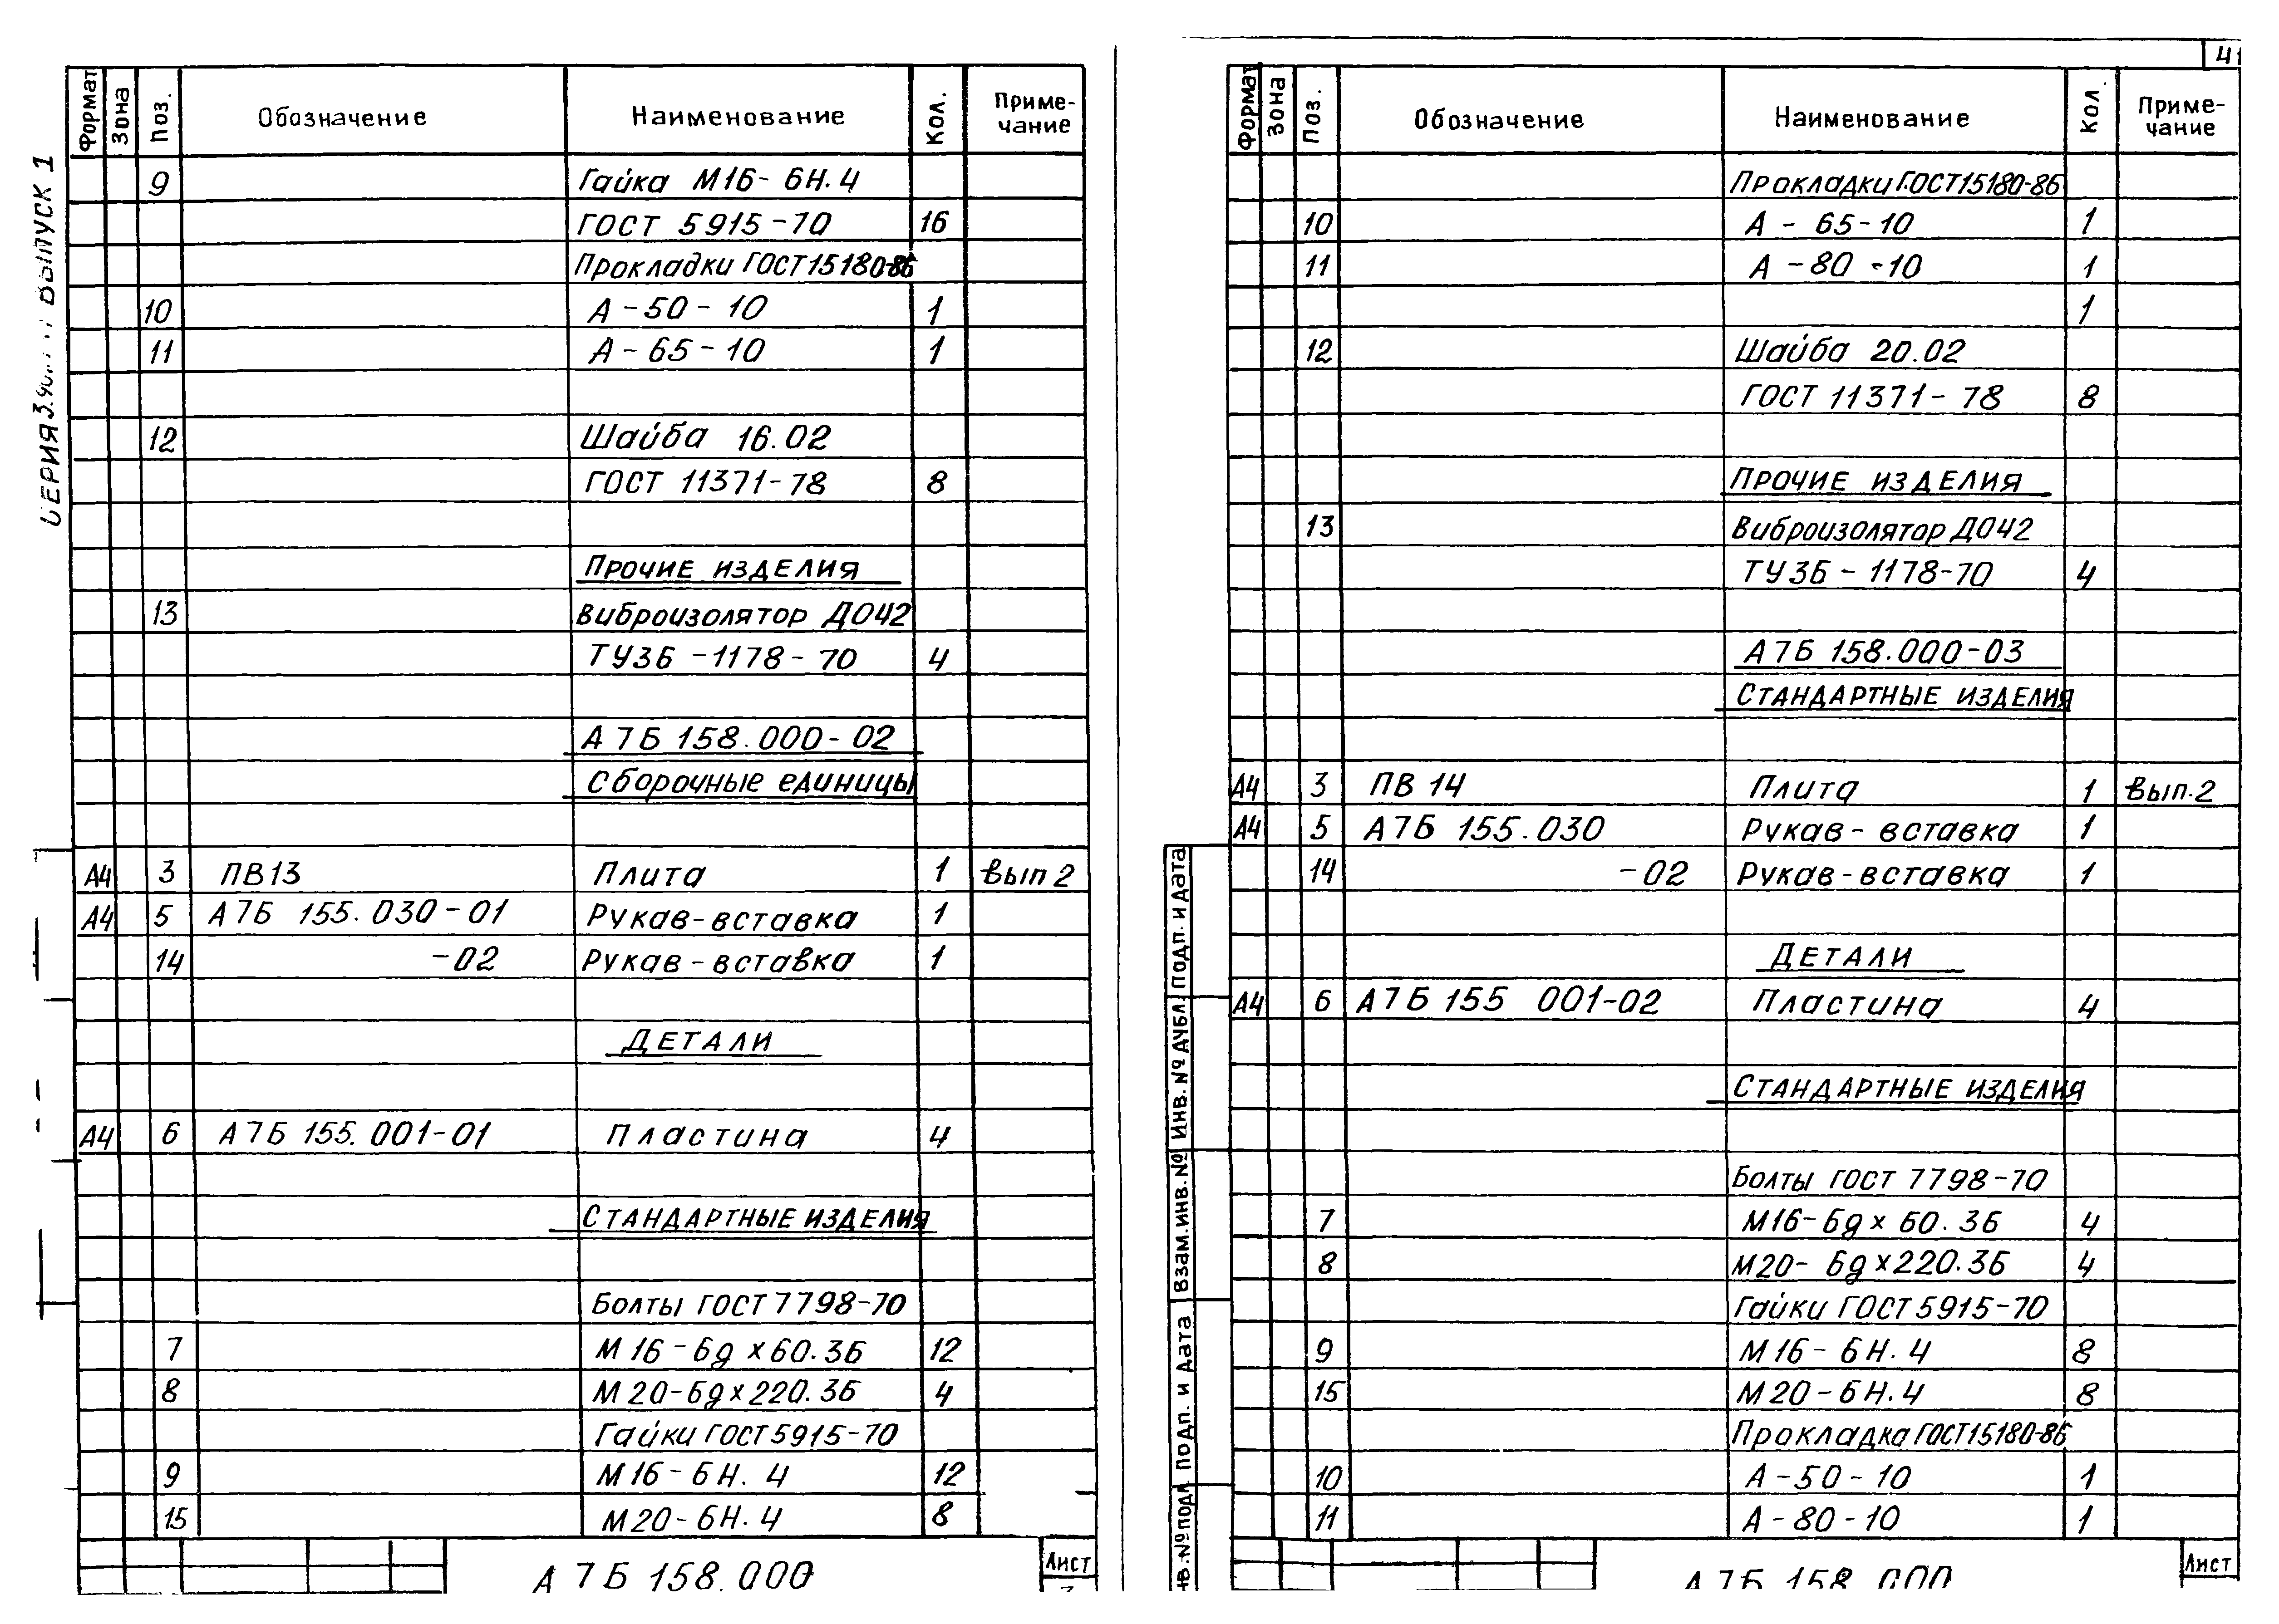 Формат Зона Поз. Обозначение Наименование Кол. Приме-
чание
9 Гайка М16-6Н.4
ГОСТ 5915-70 16
Прокладки ГОСТ15180-86
10 А-50-10 1
11 А-65-10 1
12 Шайба 16.02
ГОСТ 11371-78 8
Прочие изделия
13 Виброизолятор ДО42
ТУ3Б-1178-70 4
А7Б 158.000-02
Сборочные единицы
А4 3 ПВ13 Плита 1 вып 2
А4 5 А7Б 155.030-01 Рукав-вставка 1
14 -02 Рукав-вставка 1
Детали
А4 6 А7Б 155.001-01 Пластина 4
Стандартные изделия
Болты ГОСТ 7798-70
7 М16-6g х 60.36 12
8 М20-6g х 220.36 4
Гайки ГОСТ 5915-70
9 М16-6Н.4 12
15 М20-6Н.4 8
А7Б 158.000
Лист
СЕРИЯ ВЫПУСК 1
41
Формат Зона Поз. Обозначение Наименование Кол. Приме-
чание
Прокладки ГОСТ15180-86
10 А-65-10 1
11 А-80-10 1
1
12 Шайба 20.02
ГОСТ 11371-78 8
Прочие изделия
13 Виброизолятор ДО42
ТУ3Б-1178-70 4
А7Б 158.000-03
Стандартные изделия
А4 3 ПВ 14 Плита 1 вып.2
А4 5 А7Б 155.030 Рукав-вставка 1
14 -02 Рукав-вставка 1
Детали
А4 6 А7Б 155 001-02 Пластина 4
Стандартные изделия
Болты ГОСТ 7798-70
7 М16-6g х 60.36 4
8 М20-6g х 220.36 4
Гайки ГОСТ 5915-70
9 М16-6Н.4 8
15 М20-6Н.4 8
Прокладка ГОСТ15180-86
10 А-50-10 1
11 А-80-10 1
А7Б 158.000
Лист
Подп. и дата
Инв. № дубл.
Взам. инв. №
Подп. и дата
нв. № подл.